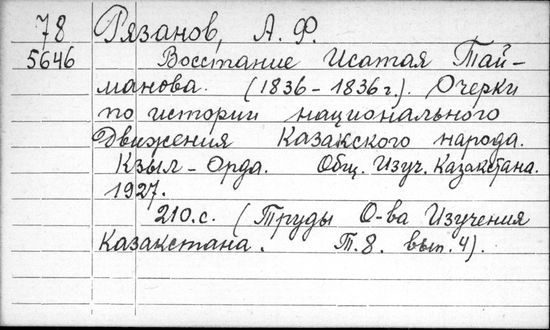 78 Рязанов, А. Ф.
5646 Восстание Исатая Тай-
манова. (1836-1836 г.). Очерки
по истории национального
Движения Казакского народа.
Кзыл-Орда. Общ. Изуч. Казакстана.
1927.
210.с. (Труды О-ва Изучения
Казакстана. Т.8. вып. 4).